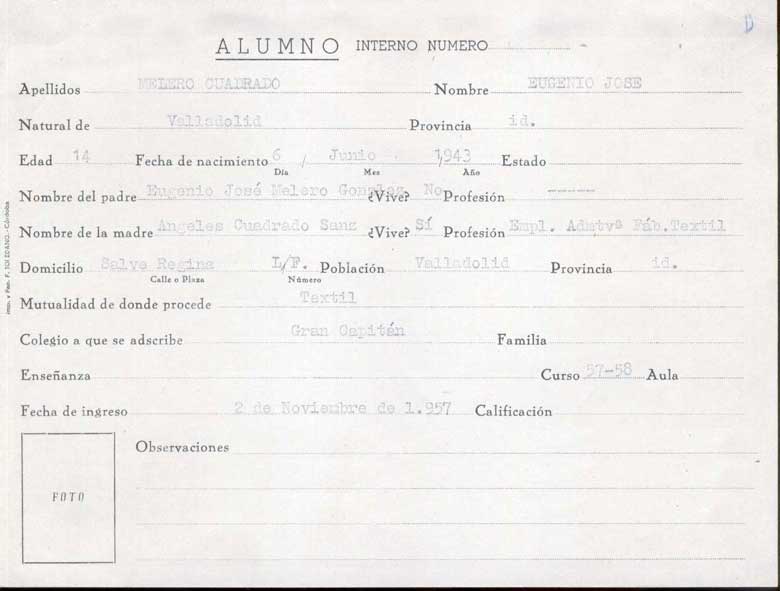 D
ALUMNO INTERNO NUMERO
Apellidos MELERO CUADRADO Nombre EUGENIO JOSE
Natural de Valladolid Provincia id.
Edad 14 Fecha de nacimiento 6 / Junio 1,943 Estado
Día Mes Año
Nombre del padre Eugenio José Melero González ¿Vive? No Profesión -----
Nombre de la madre Angeles Cuadrado Sanz ¿Vive? Sí Profesión Empl. Admtvª Fáb.Textil
Domicilio Salve Regina L/F. Población Valladolid Provincia id.
Calle o Plaza Número
Mutualidad de donde procede Textil
Colegio a que se adscribe Gran Capitán Familia
Enseñanza Curso 57-58 Aula
Fecha de ingreso 2 de Noviembre de 1.957 Calificación
Observaciones
FOTO